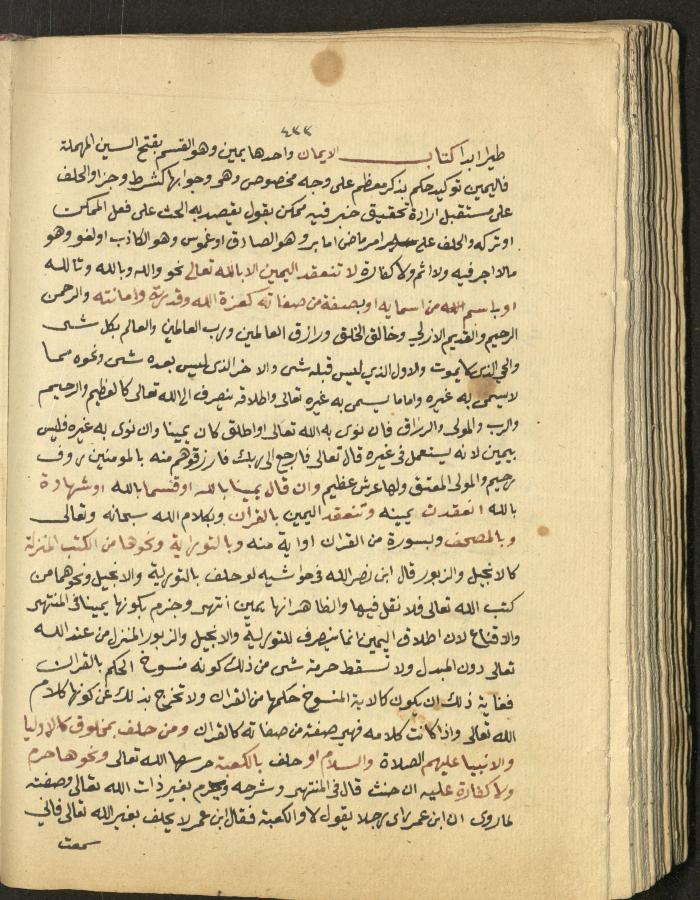 ٤٣٣
طيرا ابدا كتاب الايمان واحدها يمين وهو القسم بفتح السين المهملة
فاليمين توكيد حكم بذكر معظم على وجه مخصوص وهي وجوابها كشرط وجزا والحلف
على مستقبل ارادة تحقيق خبر فيه ممكن بقول يقصد به الحث على فعل الممكن
او تركه والحلف على امر ماض اما بر وهو الصادق او غموس وهو الكاذب او لغو وهو
مالا اجر فيه ولا اثم ولا كفارة لا تنعقد اليمين الا بالله تعالى نحو والله وبالله وتالله
او باسم الله من اسمايه او بصفة من صفاته كعزة الله وقدرته وامانته والرحمن
الرحيم والقديم الازلي وخالق الخلق ورازق العالمين ورب العالمين والعالم بكل شي
والحي الذي لا يموت والاول الذي ليس قبله شي والاخر الذي ليس بعده شي ونحوه مما
لا يسمى به غيره واما ما يسمى به غيره تعالى واطلاقه ينصرف الى الله تعالى كالعظيم والرحيم
والرب والمولى والرزاق فان نوى به الله تعالى او اطلق كان يمينا وان نوى به غيره فليس
بيمين لانه يستعمل في غيره قال تعالى فارجع الى ربك فارزقوهم منه بالمومنين روف
رحيم والمولى المعتق ولها عرش عظيم وان قال يمينا بالله او قسما بالله او شهادة
بالله انعقدت يمينه وتنعقد اليمين بالقران وبكلام الله سبحانه وتعالى
وبالمصحف وبسورة من القران او اية منه وبالتوراية ونحوها من الكتب المنزلة
كالانجيل والزبور قال ابن نصر الله في حواشيه لو حلف بالتورية والانجيل ونحوهما من
كتب الله تعالى فلا نقل فيها والظاهر انها يمين انتهى وجزم بكونها يمينا في المنتهى
والاقناع لان اطلاق اليمين انما ينصرف للتورية والانجيل والزبور المنزل من عند الله
تعالى دون المبدل ولا تسقط حرمة شي من ذلك كونه منسوخ الحكم بالقران
فغاية ذلك ان يكون كالاية المنسوخ حكمها من القران ولا تخرج بذلك عن كونها كلام
الله تعالى واذا كانت كلامه فهي صفة من صفاته كالقران ومن حلف بمخلوق كالاوليا
والانبيا عليهم الصلاة والسلام او حلف بالكعبة حرسها الله تعالى ونحوها حرم
ولا كفارة عليه ان حنث قال في المنتهى وشرحه ويحرم بغير ذات الله تعالى وصفته
لما روى ان ابن عمر راى رجلا يقول لا والكعبة فقال ابن عمر لا يحلف بغير الله تعالى فاني
سمعت